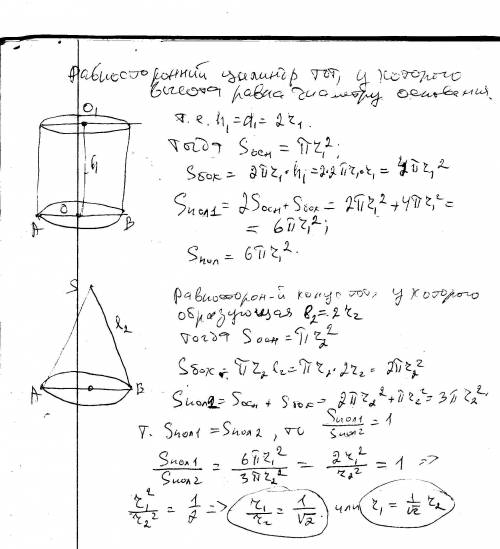 Равносторонний цилиндр тот, у которого
высота равна диаметру основания.
O₁
т.е. h₁ = d₁ = 2r₁.
тогда Sосн = πr₁²
h₁
Sбок = 2πr₁·h₁ = 2·2πr₁·r₁ = 4πr₁²
Sпол1 = 2Sосн + Sбок = 2πr₁² + 4πr₁² =
O
A B
= 6πr₁²;
Sпол = 6πr₁².
S
Равносторон-й конус тот, у которого
образующая l₂ = 2r₂
l₂
тогда Sосн = πr₂²
Sбок = πr₂l₂ = πr₂·2r₂ = 2πr₂²
A o B
Sпол2 = Sосн + Sбок = 2πr₂² + πr₂² = 3πr₂²
т. Sпол1 = Sпол2, то Sпол1/Sпол2 = 1
Sпол1/Sпол2 = 6πr₁²/3πr₂² = 2r₁²/r₂² = 1 =>
r₁²/r₂² = 1/2 => r₁/r₂ = 1/√2 или r₁ = 1/√2 r₂